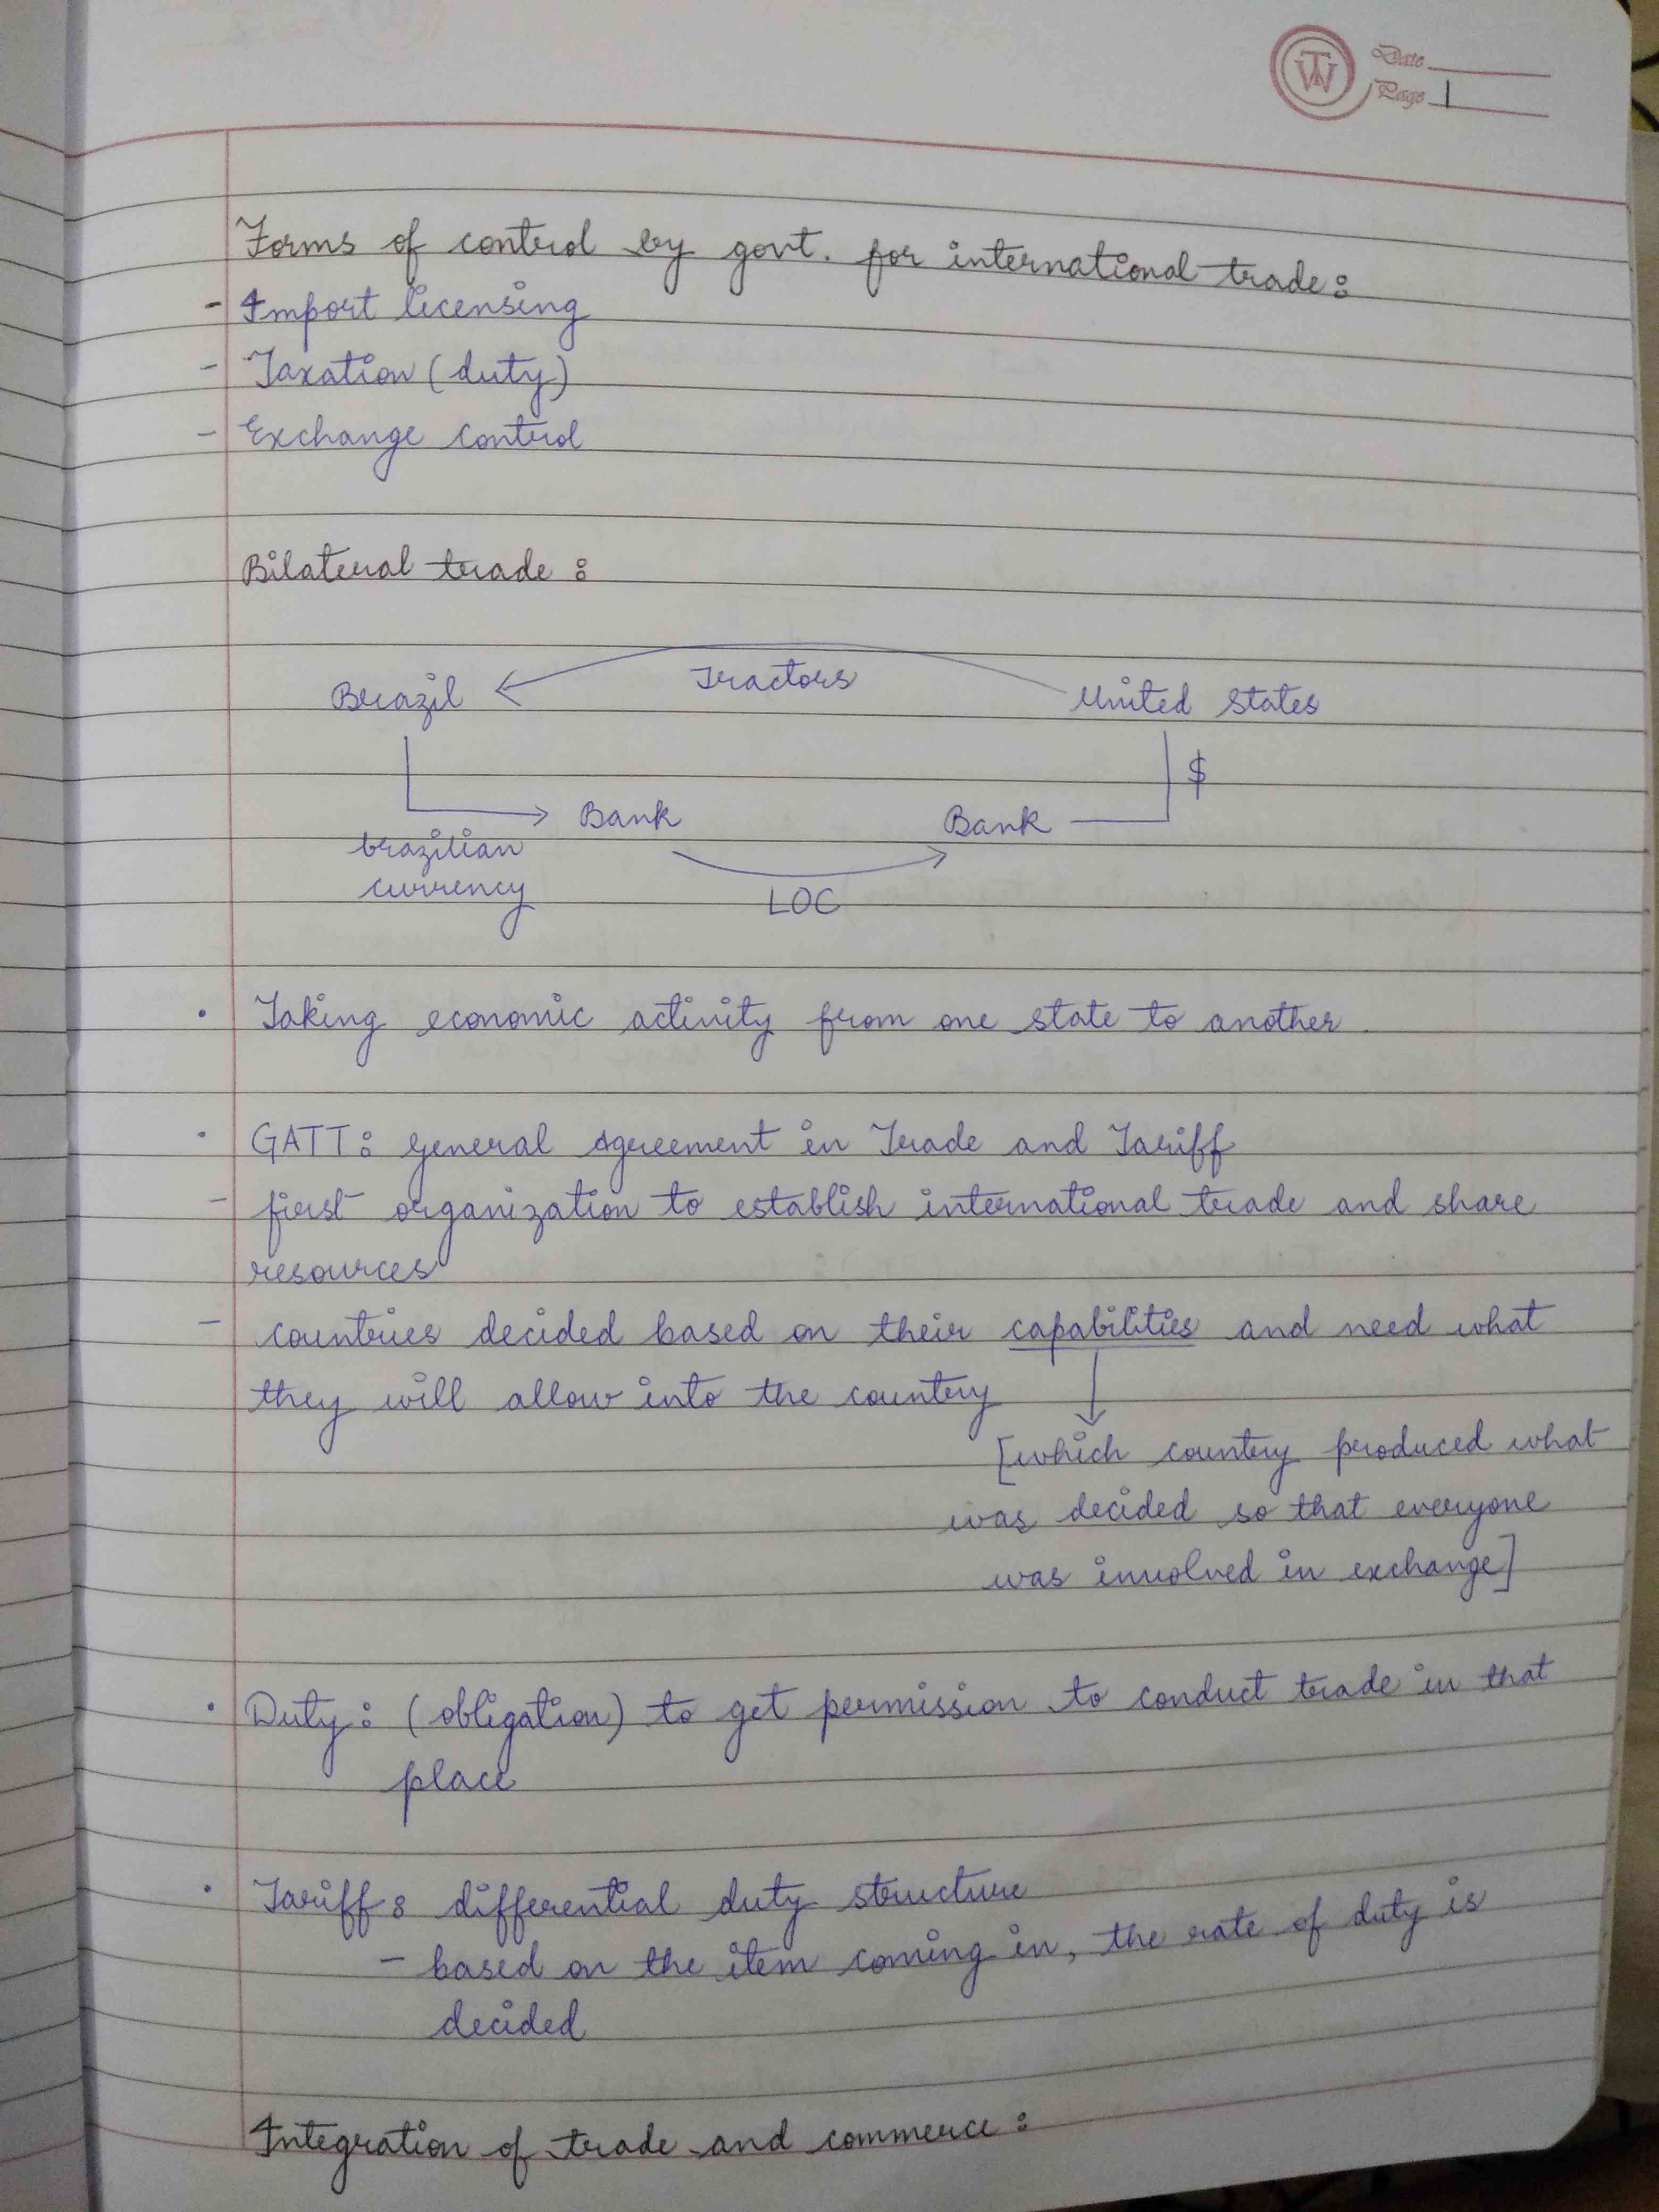 TW
Date
Page 1
Forms of control by govt. for international trade:
- Import licensing
- Taxation (duty)
- Exchange control
Bilateral trade:
Brazil Tractors United States
$
Bank Bank
brazilian
currency
LOC
• Taking economic activity from one state to another.
• GATT: General Agreement in Trade and Tariff
- first organization to establish international trade and share
resources
- countries decided based on their capabilities and need what
they will allow into the country
[which country produced what
was decided so that everyone
was involved in exchange]
• Duty: (obligation) to get permission to conduct trade in that
place
• Tariff: differential duty structure
- based on the item coming in, the rate of duty is
decided
Integration of trade and commerce: